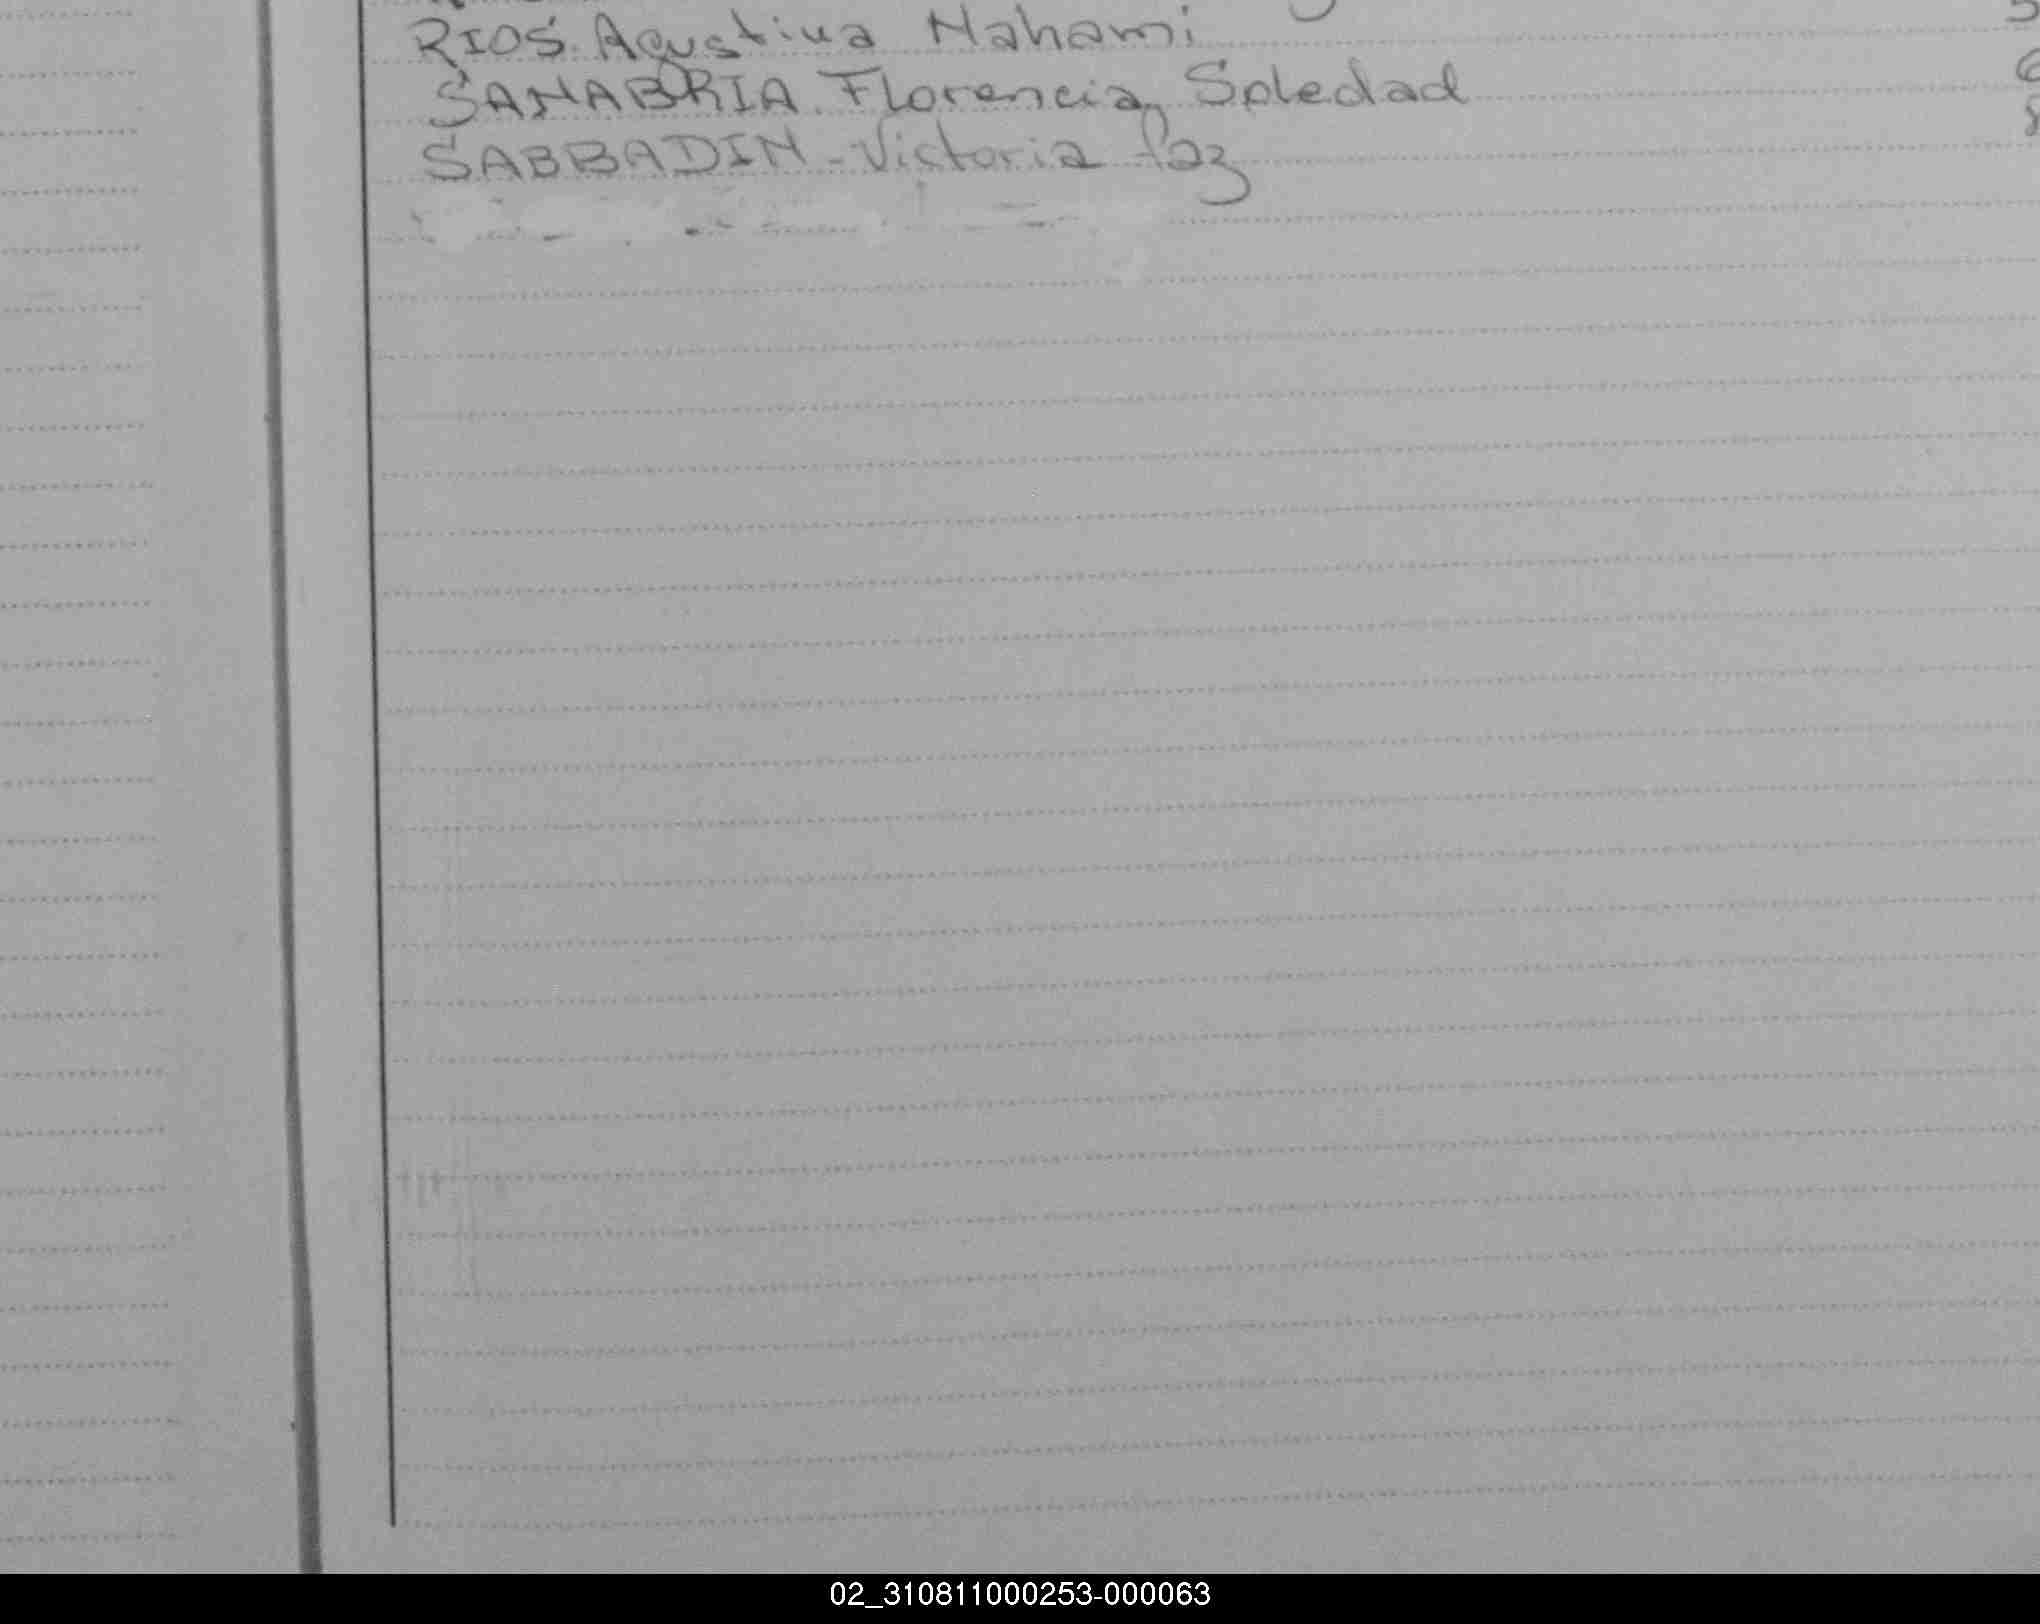 RIOS. Agustina Nahami
SANABRIA Florencia Soledad
SABBADIN - Victoria Paz
02_310811000253-000063